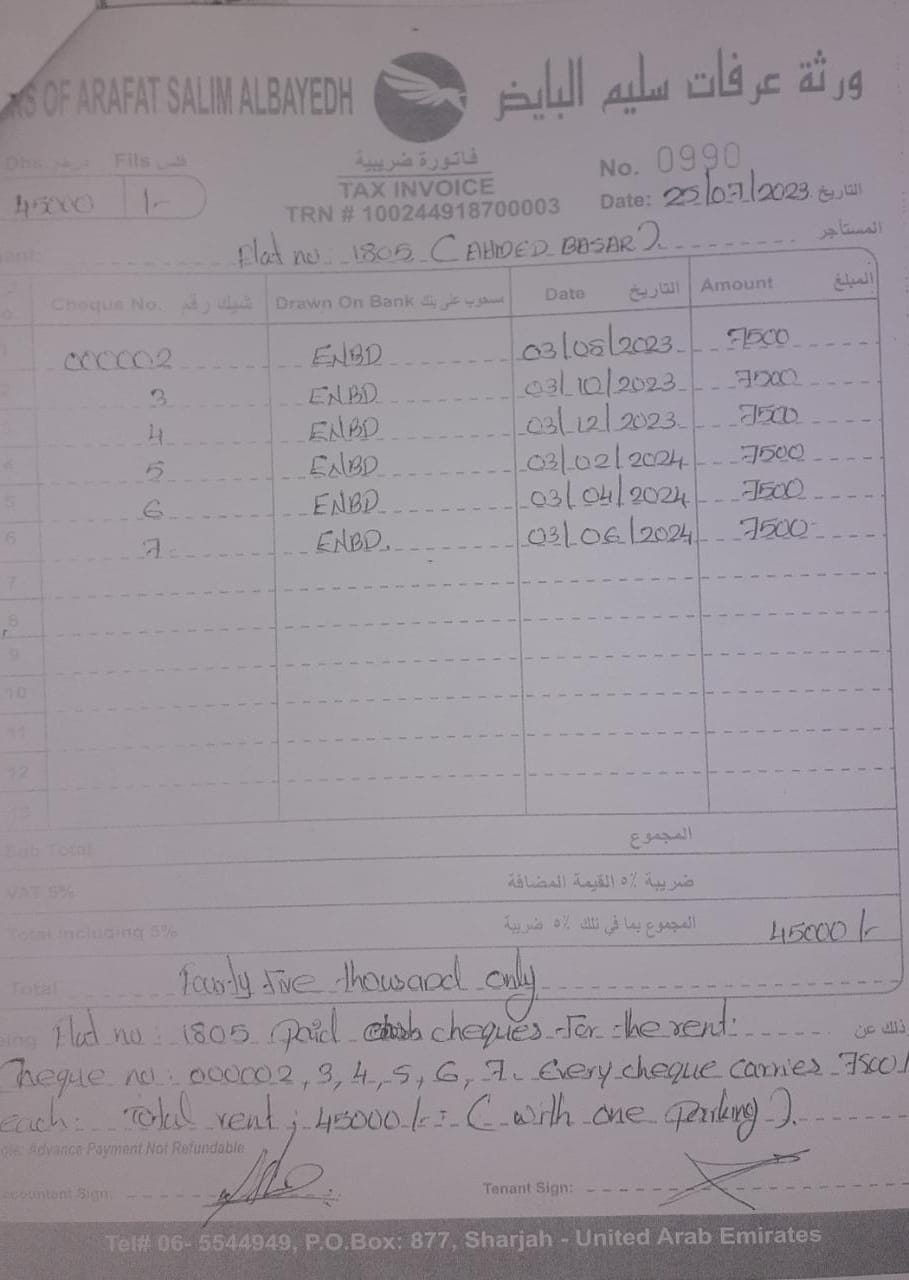 RS OF ARAFAT SALIM ALBAYEDH ورثة عرفات سليم البايض
Dhs. درهم Fils فلس
45000 /-
فاتورة ضريبية
TAX INVOICE
TRN # 100244918700003
No. 0990
Date: 25/07/2023 التاريخ
Flat no: 1805 (AHMED BASAR) المستأجر
Cheque No. شيك رقم Drawn On Bank مسحوب على بنك Date التاريخ Amount المبلغ
1 000002 ENBD 03/08/2023 7500
2 3 ENBD 03/10/2023 7500
3 4 ENBD 03/12/2023 7500
4 5 ENBD 03/02/2024 7500
5 6 ENBD 03/04/2024 7500
6 7 ENBD. 03/06/2024 7500
7
8
9
10
11
12
13
Sub Total المجموع
VAT 5% ضريبة ٥٪ القيمة المضافة
Total Including 5% المجموع بما في ذلك ٥٪ ضريبة 45000/-
Total Fourty five thousand only
Flat no: 1805 paid cheques for the rent: ذلك عن
Cheque no: 000002, 3, 4, 5, 6, 7. Every cheque carries 7500/
each: Total rent; 45000/-: (with one parking).
Advance Payment Not Refundable
Accountant Sign: Tenant Sign:
Tel# 06- 5544949, P.O.Box: 877, Sharjah - United Arab Emirates